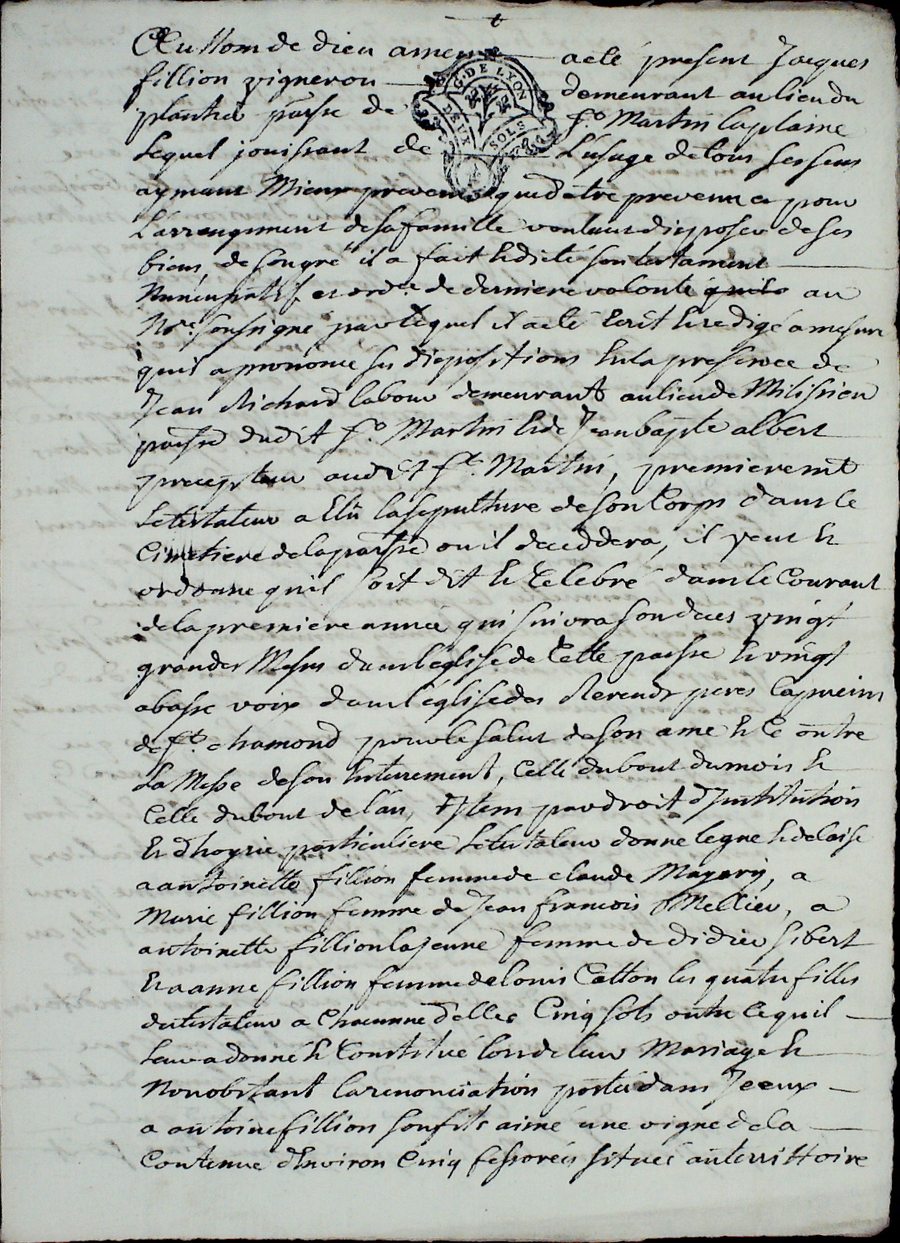 +
Au Nom de dieu amen a eté present Jacques
fillion vigneron demeurant au lieu du
G. DE LYON
DEUX SOLS
plantié paisse de St. Martin laplaine
Lequel jouissant de L'usage de tous ses sens
aymant Mieux prevenir que d'etre prevenu et pour
L'arrangement de sa famille voulant disposer de ses
biens, de son gré il a fait & dicté son testament
Nuncupatif et ordce de derniere volonté quils au
Nre soussigné par lequel il a eté Ecrit & redigé a mesure
quil a prononcé ses dispositions En la presence de
Jean Richard labour demeurant au lieu de Milissieu
paisse dudit St. Martin & de Jean bapte albert
precepteur audit St. Martin, premierement
Le testateur a Elû la sepulture de son Corps dans le
Cimetiere de la paisse ou il deceddera, il veut &
ordonne quil soit dit & Celebré dans le Courant
de la premiere année qui suivra son deces vingt
grandes Messes dans l'église de Cette paisse & vingt
a basse voix dans l'église des Reverends peres Capucins
de St. chamond pour le salut de son ame & Ce outre
La Messe de son Enterrement, Celle du bout du mois &
Celle du bout de l'an, Item par droit d'Institution
& d'hoyrie particuliere Le testateur donne legue & delaisse
a antoinette fillion femme de claude Mayery, a
Marie fillion femme de Jean francois Mellier, a
antoinette fillion la jeune femme de didier sibert
Et a anne fillion femme de louis Catton les quatre filles
du testateur a Chacunne d'elles Cinq sols outre Ce quil
Leur a donné & Constitué lors de leur Mariage &
Nonobstant la renonciation portée dans Iceux
a antoine fillion son fils aimé une vigne de la
Contenue d'Environ Cinq fessorées située au territtoire